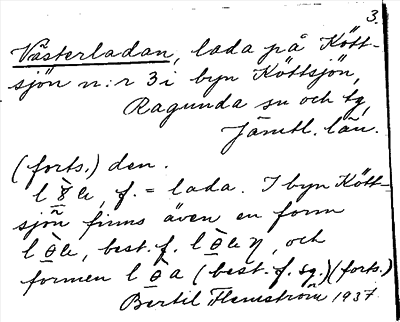 3.
Västerladan, lada på Kött-
sjön n:r 3 i byn Köttsjön,
Ragunda sn och tg,
Jämtl. län.
(forts.) den.
f. = lada. I byn Kött-
sjön finns även en form
l ò̱le, best. f. l ò̱leη, och
formen l ò̱a (best. f. sg.) (forts.)
Bertil Flemström 1937.